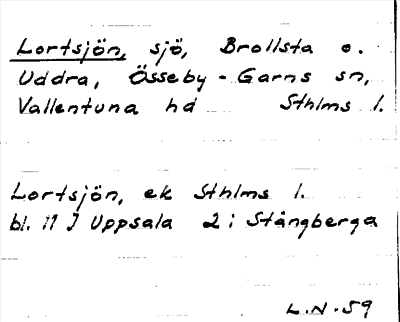 Lortsjön, sjö, Brollsta o.
Uddra, Össeby-Garns sn,
Vallentuna hd Sthlms l.
Lortsjön, ek Sthlms l.
bl. 11 J Uppsala 2i Stångberga
L.N.59